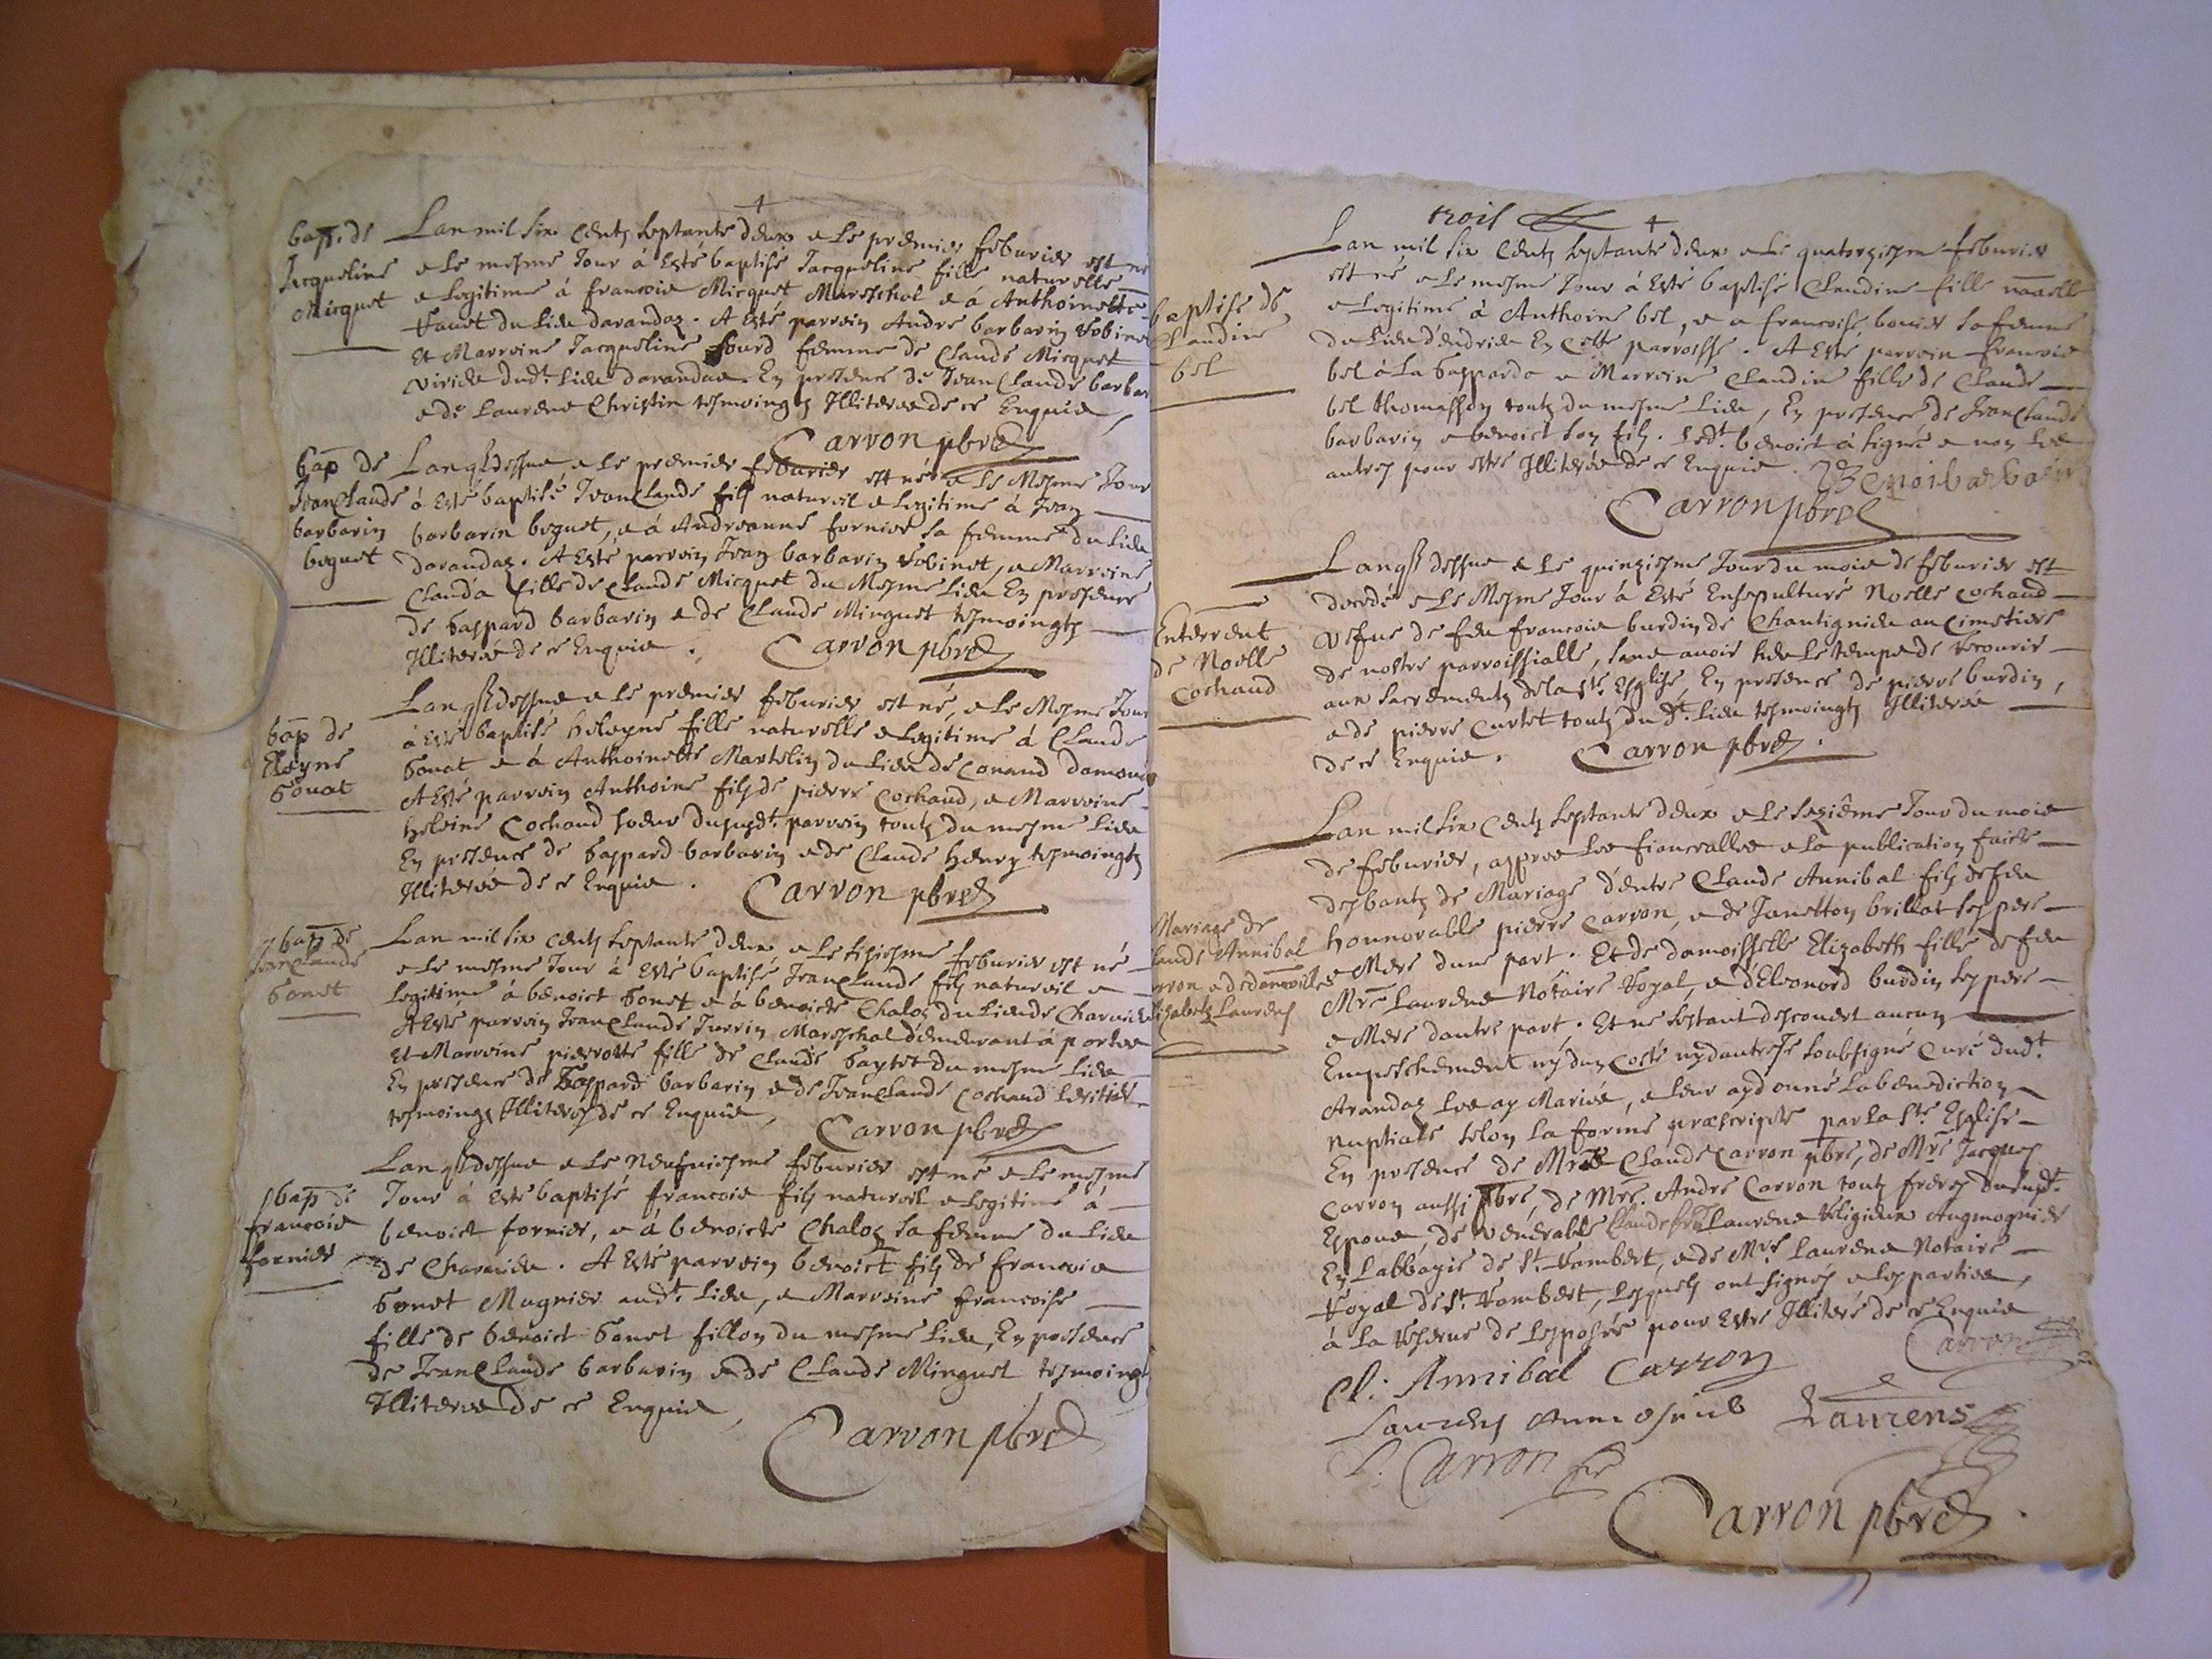 bap. de
Jacqueline
Micquet
Lan mil six centz septante deux & le premier febvrier est né
& le mesme Jour à Esté baptisé Jacqueline fille naturelle
& legitime à francois Micquet Mareschal & à Anthoinette
du lieu darandaz. A Esté parrein André barbarin Robinet
Et Marreine Jacqueline femme de Claude Micquet
dudt. lieu darandas. En presence de JeanClaude barbar
& de Laurens Christin tesmoingtz Illiterés de ce Enquis
Carron pbre
bap de
JeanClaude
barbarin
boguet
Lan qs dessus & le premier febvrier est né & le Mesme Jour
à Esté baptisé JeanClaude filz naturel & legitime à Jean
barbarin boguet, & à Andreanne fornier sa femme du lieu
darandaz. A Esté parrein Jean barbarin Robinet, & Marreine
Clauda fille de Claude Micquet du Mesme lieu En presence
de Gaspard barbarin & de Claude Minguet tesmoingtz
Illiterés de ce Enquis. Carron pbre
bap de
Heleyne
Gonet
Lan qs dessus & le premier febvrier est né, & le Mesme Jour
à Esté baptisé heleyne fille naturelle & legitime à Claude
Gonet & à Anthoinette Martelin du lieu de Conand
A Esté parrein Anthoine filz de pierre Cochand, & Marreine
heleine Cochand soeur dususdt. parrein toutz du mesme lieu
En presence de Gaspard barbarin & de Claude henry tesmoingtz
Illiterés de ce Enquis. Carron pbre
bap de
JeanClaude
Gonet
Lan mil six centz septante deux & le sixiesme febvrier est né
& le mesme Jour à Esté baptisé JeanClaude filz naturel &
legitime à benoict Gonet & à benoiste Chaloz du lieu de
A Esté parrein JeanClaude Juvrin Mareschal demeurant à portes
Et Marreine pierrotte fille de Claude du mesme lieu
En presence de Gaspard barbarin & de JeanClaude Cochand
tesmoings Illiterés de ce Enquis,
Carron pbre
bap de
francois
fornier
Lan qs dessus & le Neufviesme febvrier est né & le mesme
Jour à Esté baptisé francois filz naturel & legitime à
benoict fornier, & à benoiste Chaloz sa femme du lieu
de. A Esté parrein benoict filz de francois
Gonet Mugnier audt. lieu, & Marreine francoise
fille de benoict Gonet fillon du mesme lieu, En presence
de JeanClaude barbarin & de Claude Minguet tesmoingt
Illiterés de ce Enquis,
Carron pbre
trois
baptise de
Claudine
bel
Lan mil six centz septante deux & le quatorziesme febvrier
est né & le mesme Jour à Esté baptisé Claudine fille naaelle
& legitime à Anthoine bel, & a francoise bouier sa femme
du lieu d'Eudrieu En Cette parroisse. A Esté parrein francois
bel à la Gasparda & Marreine Claudine fille de Claude
bel thomasson toutz du mesme lieu, En presence de JeanClaude
barbarin & benoict son filz. Ledt. benoict à signé & non les
autres pour estre Illiterés de ce Enquis.
Carron pbre
Enterrent
de Noelle
Cochand
Lan qs dessus & le quinziesme Jour du mois de febvrier est
decedé & le Mesme Jour à Esté Ensepulturé Noelle Cochand
vefve de feu francois burdin de Chantignieu au Cimetiere
de nostre parroissialle, sans avoir heu le temps de recourir
aux sacrementz de la Ste. Esglise En presence de pierre burdin,
& de pierre Curtet toutz dudt. lieu tesmoingtz Illiterés
de ce Enquis. Carron pbre.
Mariage de
laude Annibal
rron & de damoiselle
Elizabetz Laurens
Lan mil six centz septante deux & le sezième Jour du mois
de febvrier, appres les fiancealles & la publication faicte
des bantz de Mariage d'entre Claude Annibal filz de feu
honnorable pierre Carron, & de Janetton brillat ses pere
& Mere dune part. Et de damoisselle Elizabeth fille de feu
Mre Laurens Notaire Royal, & d'Eleonord burdin ses pere
& Mere dautre part. Et ne sestant descouvert aucun
Empeschement ny d'un costé ny dautre Je soubsigné Curé dudt.
Arandaz les ay Mariés, & leur ay donné la benediction
nuptiale selon la forme præscripte par la Ste Esglise
En presence de Mre Claude Carron pbre, de Mre Jacques
Carron aussi pbre, de Mre. André Carron toutz freres dusudt.
Espoux, de venerable Laurens Religieux Augmognier
En Labbayie de St. Rambert, & de Mre Laurens Notaire
Royal de St. Rambert, lesquels ont signés & les parties,
à la reserve de lesposée pour Estre Illiteré de ce Enquis
Carron
Cl: Annibal Carron
Laurens Laurens
Carron
Carron pbre.